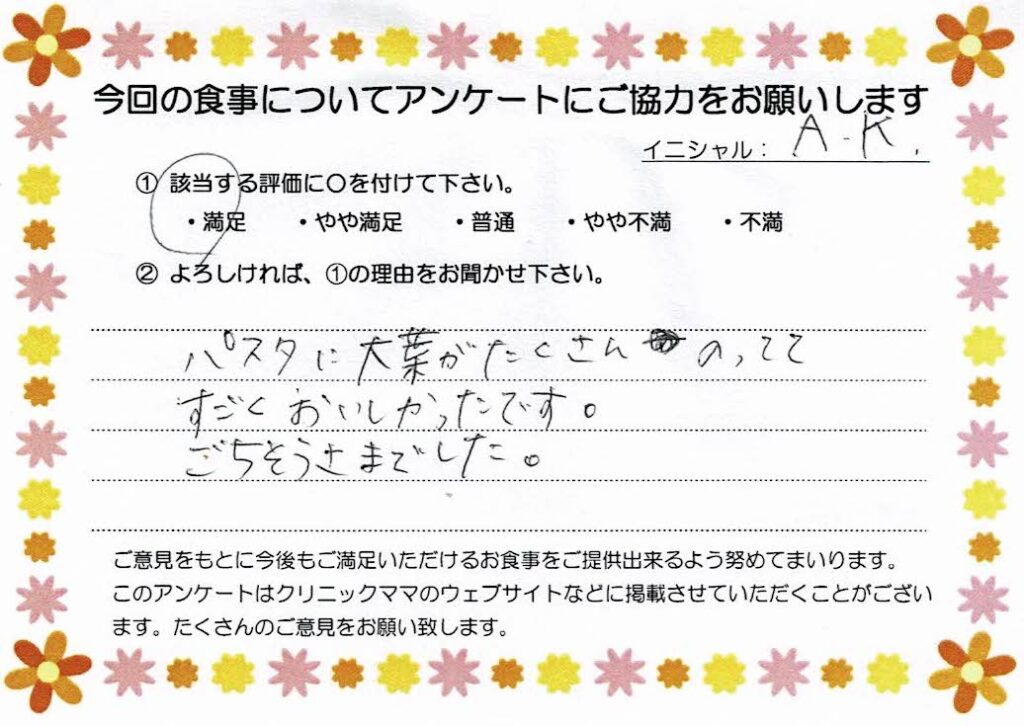 今回の食事についてアンケートにご協力をお願いします
イニシャル： A-K.
① 該当する評価に〇を付けて下さい。
・満足 ・やや満足 ・普通 ・やや不満 ・不満
② よろしければ、①の理由をお聞かせ下さい。
パスタに大葉がたくさん のってて
すごくおいしかったです。
ごちそうさまでした。
ご意見をもとに今後もご満足いただけるお食事をご提供出来るよう努めてまいります。
このアンケートはクリニックママのウェブサイトなどに掲載させていただくことがござい
ます。たくさんのご意見をお願い致します。